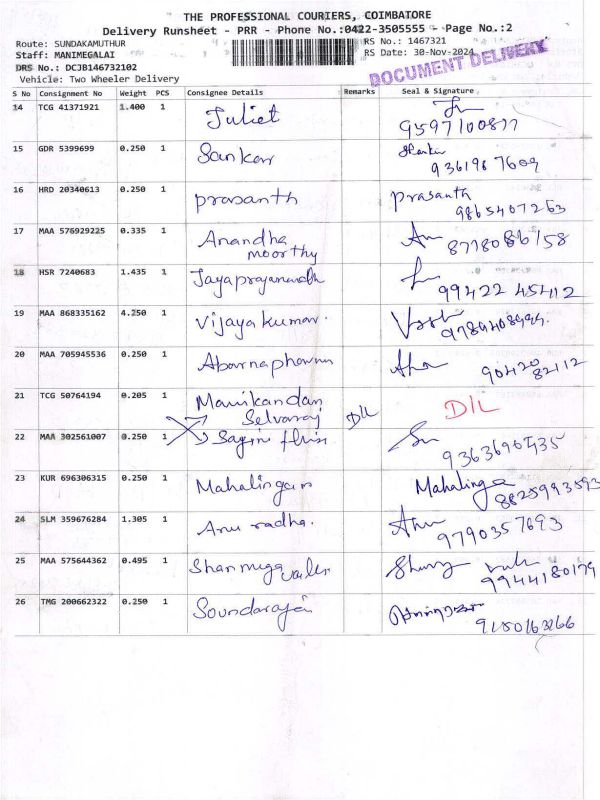 THE PROFESSIONAL COURIERS, COIMBATORE
Delivery Runsheet - PRR - Phone No.:0422-3505555 - Page No.:2
Route: SUNDAKAMUTHUR RS No.: 1467321
Staff: MANIMEGALAI RS Date: 30-Nov-2024
DRS No.: DCJB146732102
DOCUMENT DELIVERY
Vehicle: Two Wheeler Delivery
S No Consignment No Weight PCS Consignee Details Remarks Seal & Signature
14 TCG 41371921 1.400 1 Juliet
15 GDR 5399699 0.250 1 Sankar
9361967609
16 HRD 20340613 0.250 1 prasanth prasanth
9865407263
17 MAA 576929225 0.335 1 Anandha
moorthy 8778086158
18 HSR 7240683 1.435 1
99422 45412
19 MAA 868335162 4.250 1 Vijayakumar.
20 MAA 705945536 0.250 1
90420
82112
21 TCG 50764194 0.205 1 Manikandan D/L
Selvaraj D/L
22 MAA 302561007 0.250 1
23 KUR 696306315 0.250 1 Mahalingam Mahalinga
8825993593
24 SLM 359676284 1.305 1 Anu radha.
9790357693
25 MAA 575644362 0.495 1
9944180179
26 TMG 200662322 0.250 1